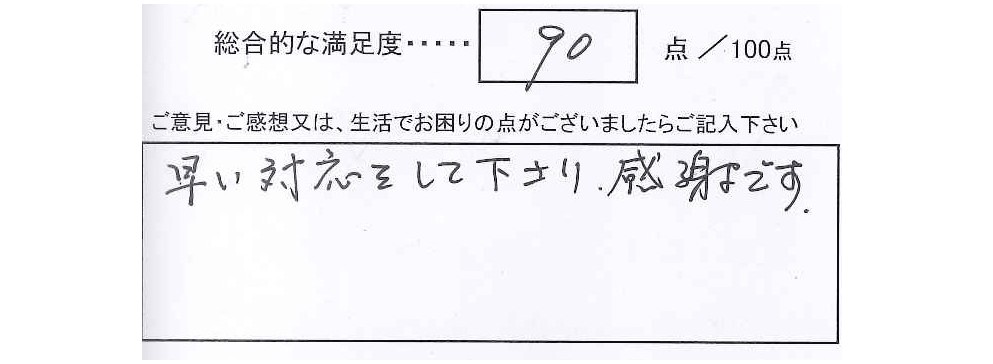 総合的な満足度・・・・・ 90 点 ／100点
ご意見・ご感想又は、生活でお困りの点がございましたらご記入下さい
早い対応をして下さり、感謝です.